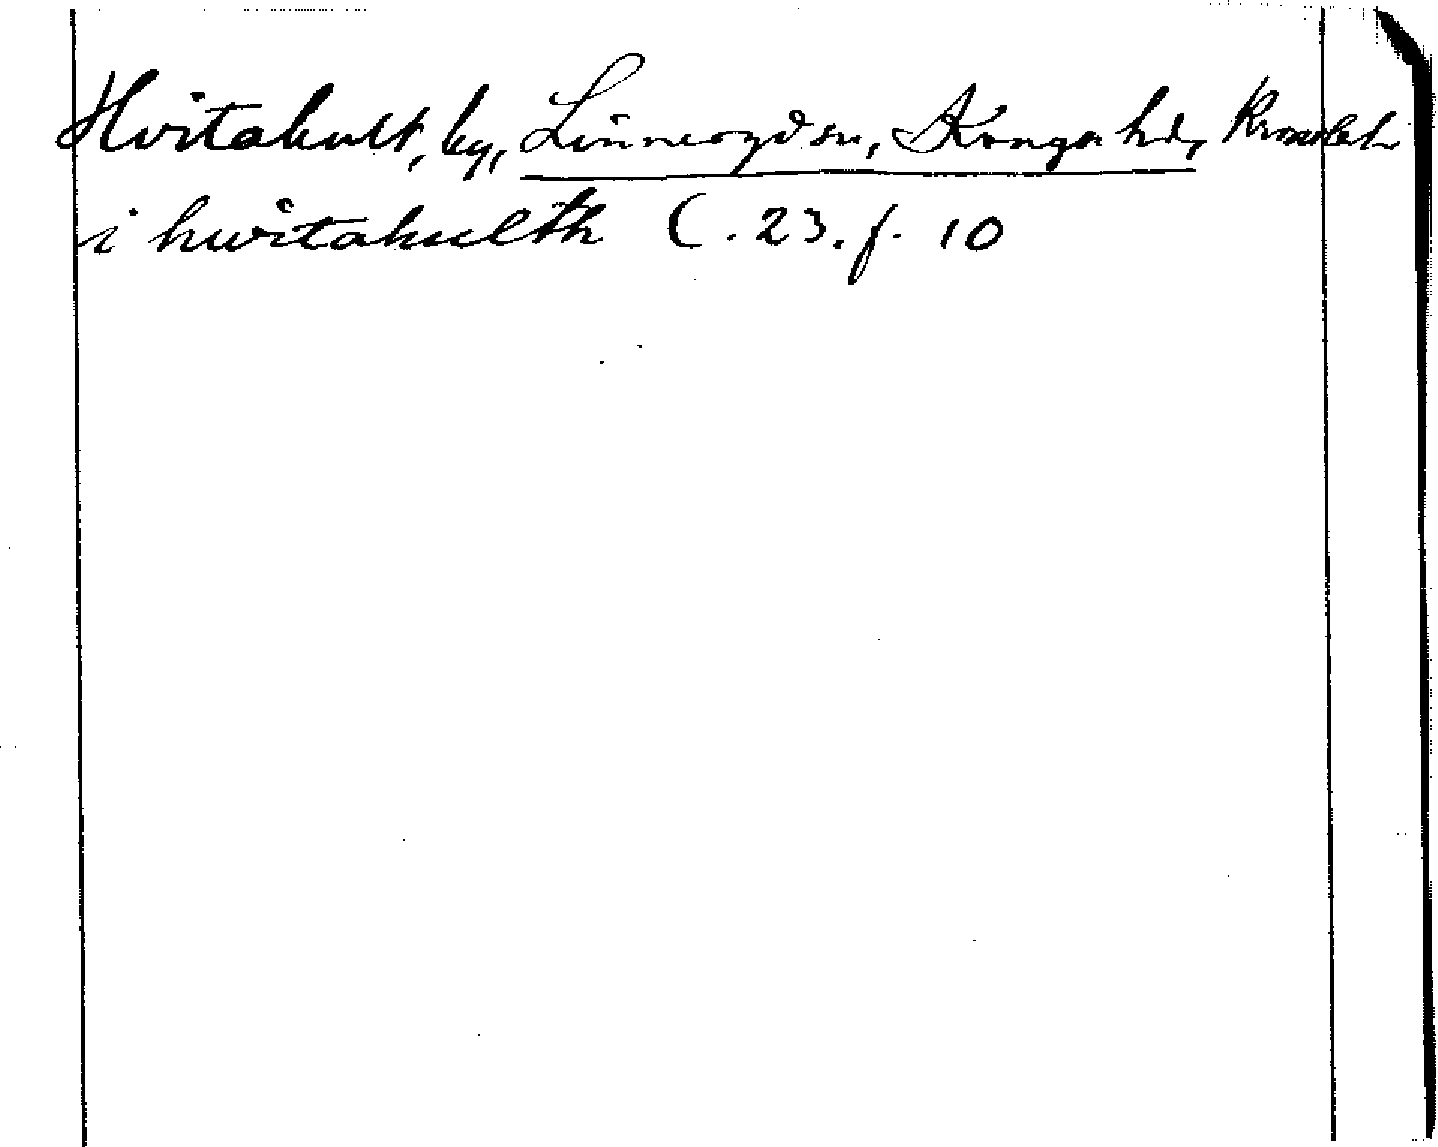 Hvitakult, by, Linneryd sn, Konga hd,
i hwitakulth C. 23. f. 10